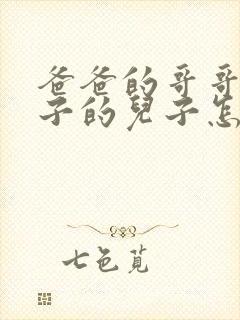 爸爸的哥哥
子的兒子怎
七色覓